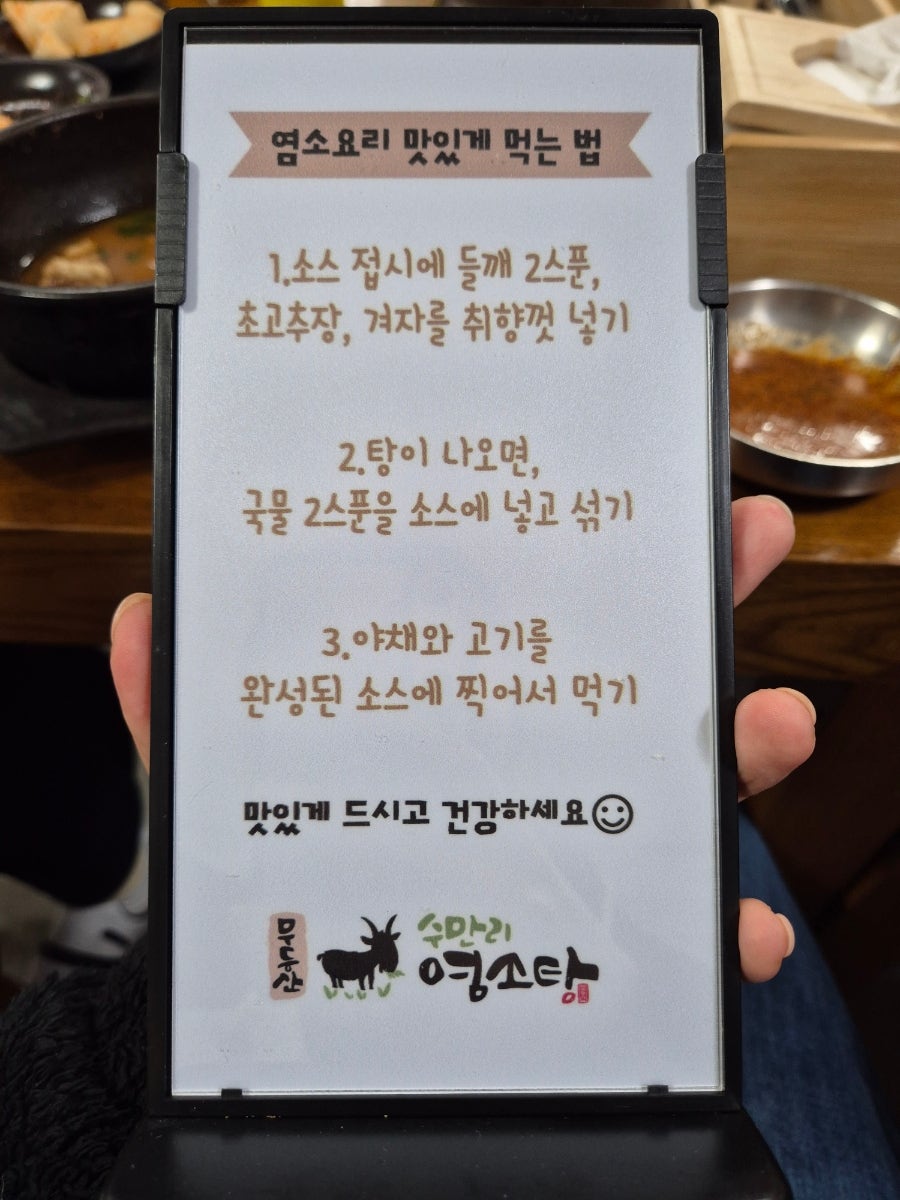 염소요리 맛있게 먹는 법
1.소스 접시에 들깨 2스푼,
초고추장, 겨자를 취향껏 넣기
2.탕이 나오면,
국물 2스푼을 소스에 넣고 섞기
3.야채와 고기를
완성된 소스에 찍어서 먹기
맛있게 드시고 건강하세요
무등산
수만리
염소탕